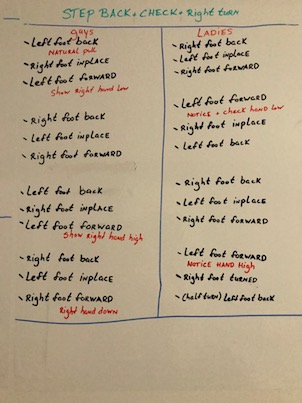 STEP BACK + CHECK + Right turn
guys
- Left foot back
NATURAL pull
- Right foot inplace
- Left foot FORWARD
Show Right hand low
- Right foot back
- Left foot inplace
- Right foot FORWARD
- Left foot back
- Right foot inplace
- Left foot FORWARD
Show Right hand high
- Right foot back
- Left foot inplace
- Right foot FORWARD
Right hand down
LADIES
- Right foot back
- Left foot inplace
- Right foot FORWARD
- Left foot FORWARD
NOTICE + check hand low
- Right foot inplace
- Left foot back
- Right foot back
- Left foot inplace
- Right foot FORWARD
- Left foot FORWARD
NOTICE HAND High
- Right foot TURNED
- (half turn) Left foot back